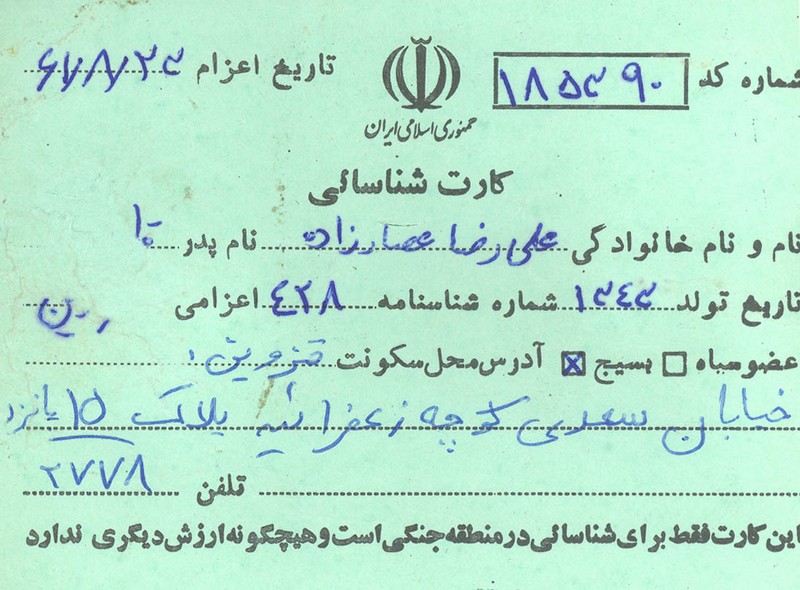 شماره کد ۱۸۵۳۹۰ تاریخ اعزام ۶۷/۸/۲۳
جمهوری اسلامی ایران
کارت شناسائی
نام و نام خانوادگی علی رضا عصارزاده نام پدر
تاریخ تولد ۱۳۴۳ شماره شناسنامه ۴۲۸ اعزامی
عضو سپاه بسیج آدرس محل سکونت قزوین،
خیابان سعدی کوچه زعفرانیه پلاک ۱۵ پانزده
تلفن ۲۷۷۸
این کارت فقط برای شناسائی در منطقه جنگی است و هیچگونه ارزش دیگری ندارد